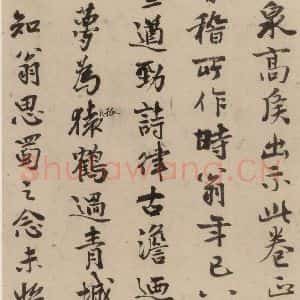 泉高矦出示此卷
稽所作時翁年已
遒勁詩律古澹迺
夢為猿鶴過青城
知翁思蜀之念未始
shufawang.cn